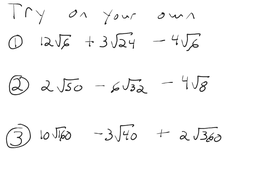 Try on your own
① 12√6 + 3√24 - 4√6
② 2√50 - 6√32 - 4√8
③ 10√160 - 3√40 + 2√360